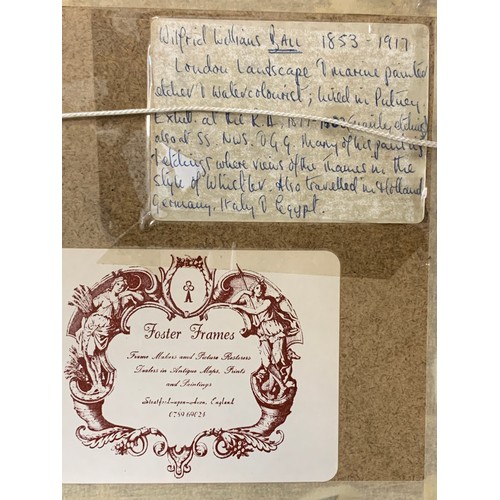 Wilfrid Williams BALL 1853 - 1917
London Landscape & marine painter
etcher & watercolourist; lived in Putney.
Exhib. at the R.A, mainly etchings
also at SS. NWS. GG. Many of his paintings
& etchings where views of the Thames in the
style of Whistler. Also travelled in Holland
Germany, Italy & Egypt.
Foster Frames
Frame Makers and Picture Restorers
Dealers in Antique Maps, Prints
and Paintings
Stratford-upon-Avon, England
0789 69024